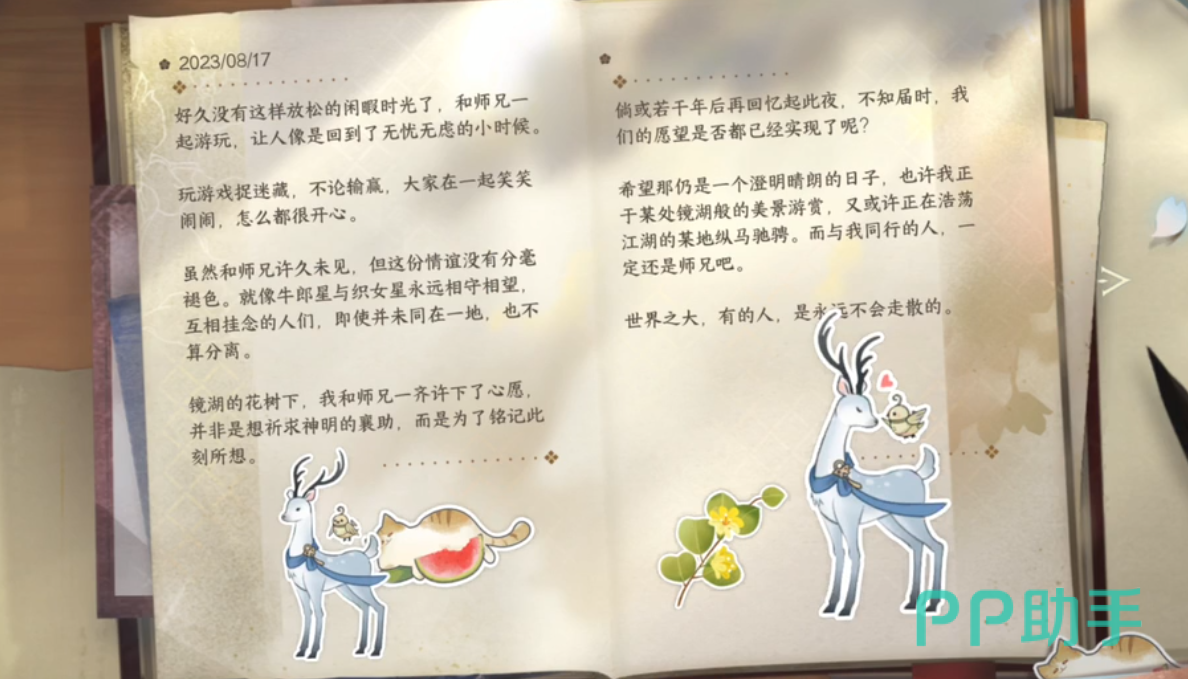 2023/08/17
好久没有这样放松的闲暇时光了，和师兄一
起游玩，让人像是回到了无忧无虑的小时候。
玩游戏捉迷藏，不论输赢，大家在一起笑笑
闹闹，怎么都很开心。
虽然和师兄许久未见，但这份情谊没有分毫
褪色。就像牛郎星与织女星永远相守相望，
互相挂念的人们，即使并未同在一地，也不
算分离。
镜湖的花树下，我和师兄一齐许下了心愿，
并非是想祈求神明的襄助，而是为了铭记此
刻所想。
倘或若干年后再回忆起此夜，不知届时，我
们的愿望是否都已经实现了呢？
希望那仍是一个澄明晴朗的日子，也许我正
于某处镜湖般的美景游赏，又或许正在浩荡
江湖的某地纵马驰骋。而与我同行的人，一
定还是师兄吧。
世界之大，有的人，是永远不会走散的。
PP助手